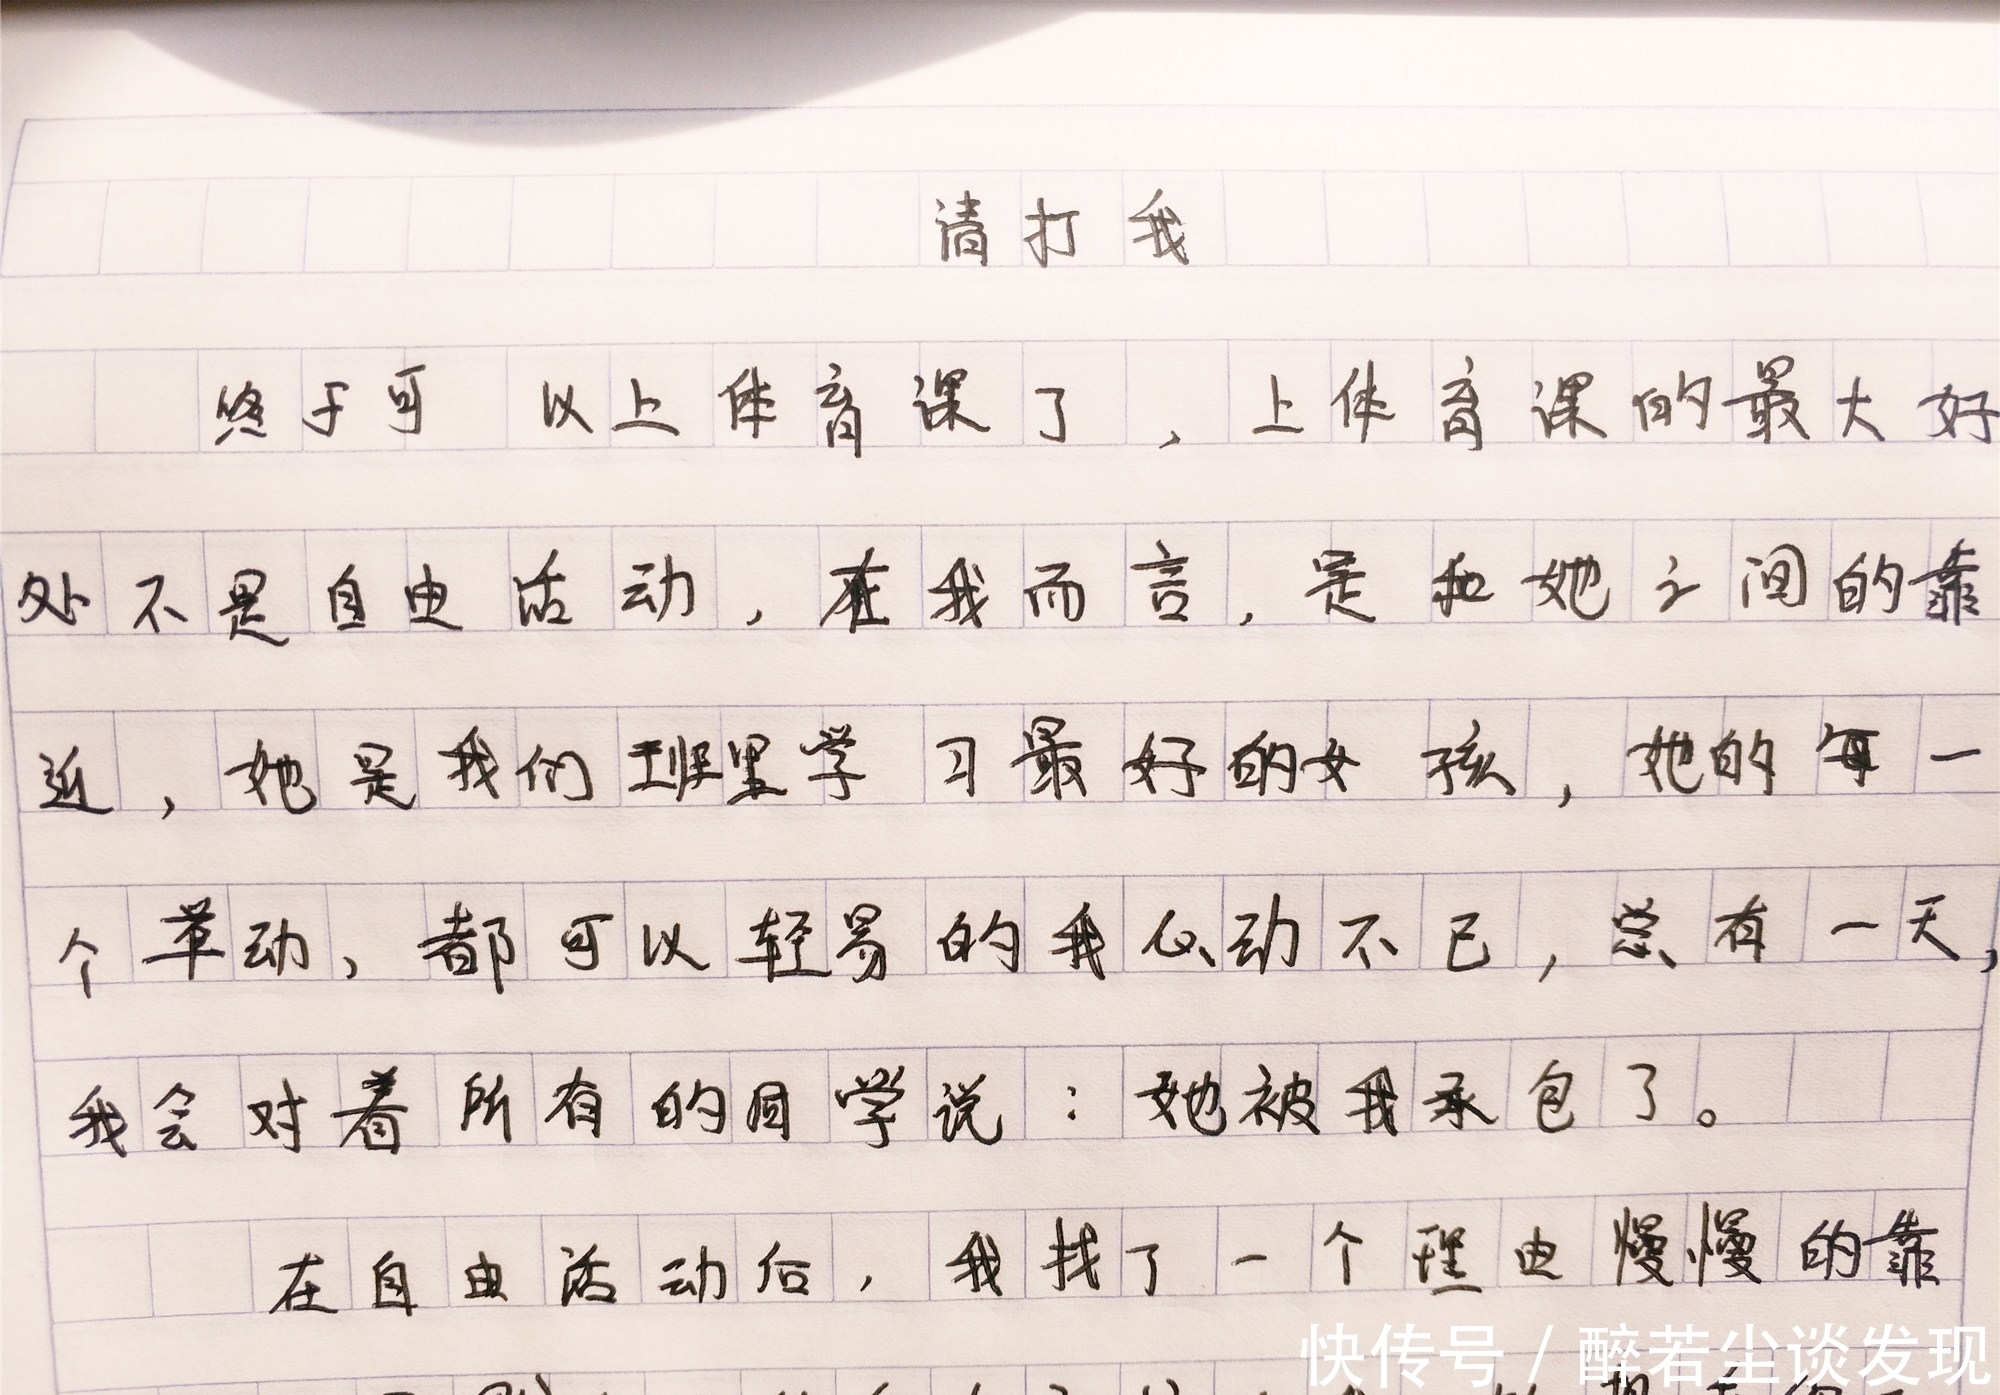 请打我
终于可以上体育课了，上体育课的最大好
处不是自由活动，在我而言，是和她之间的靠
近，她是我们班里学习最好的女孩，她的每一
个草动，都可以轻易的我心动不已，总有一天，
我会对着所有的同学说：她被我承包了。
在自由活动后，我找了一个理由慢慢的靠
快传号 / 醉若尘谈发现